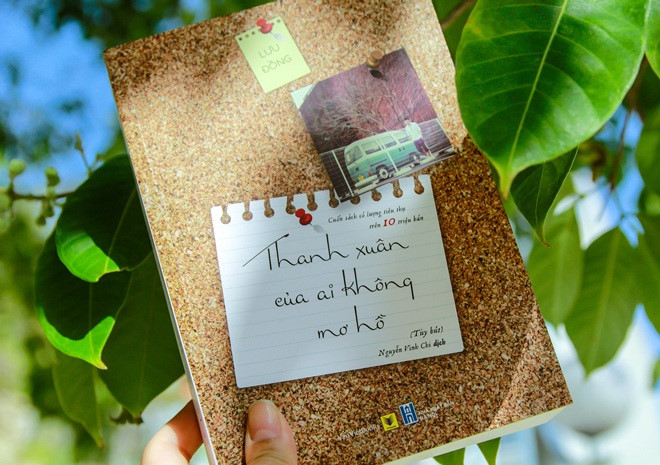 LƯU
ĐỒNG
Cuốn sách có lượng tiêu thụ
trên 10 triệu bản
Thanh xuân
của ai không
mơ hồ
(Tùy bút)
Nguyễn Vinh Chi dịch